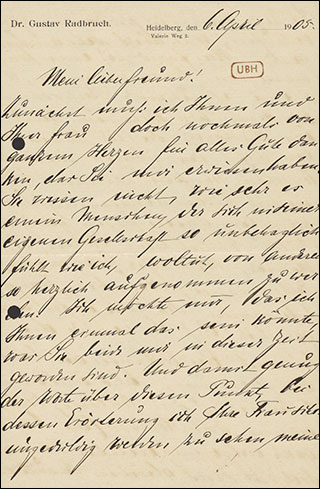 Dr. Gustav Radbruch.
Heidelberg, den 6. April 1905.
UBH
Mein lieber Freund!
Zunächst muß ich Ihnen und
Ihrer Frau doch nochmals von
ganzem Herzen für alles Gute dan
ken, das Sie mir erwiesen haben.
Sie wissen nicht, wie sehr es
einem Menschen, der sich in seiner
eigenen Gesellschaft so unbehaglich
fühlt wie ich, wohltut, von anderen
so herzlich aufgenommen zu wer
den. Ich möchte nur, das ich
Ihnen einmal das sein könnte,
was Sie beide mir in dieser Zeit
geworden sind. Und damit genug
der Worte über diesen Punkt, bei
dessen Erörterung ich Ihre Frau
ungeduldig werden zu sehen meine